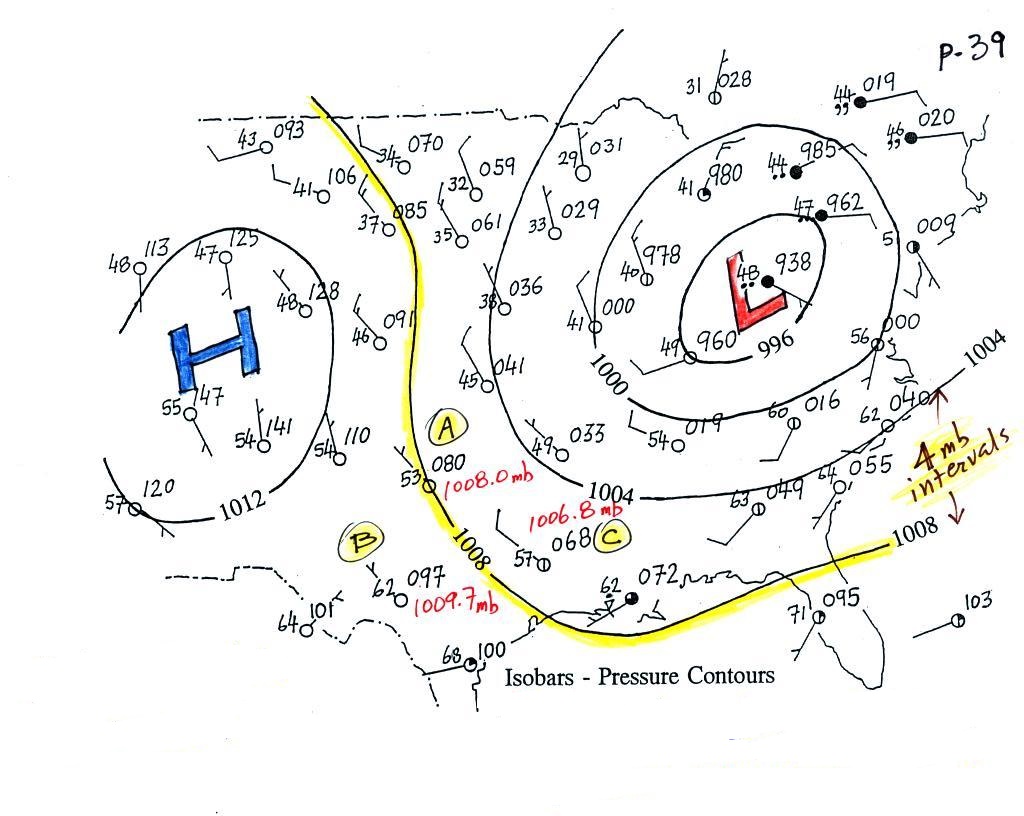 P-39
31 028
44 019
,,
46 020
,,
43 093
34 070
32 059
29 031
41 980
44 985
41 106
37 085
35 061
33 029
47 962
5 009
48 113
47 125
48 128
46 091
38 036
40 978
48 938
41 000
49 960
56 000
H
L
996
1000
1004
55 147
54 141
54 110
45 041
54 019
60 016
62 040
A
53 080
1008.0 mb
49 033
1004
64 055
63 049
4 mb
intervals
57 120
1012
1006.8 mb
57 068 C
B
1008
1008
62 097
1009.7 mb
62 072
64 101
71 095
103
68 100
Isobars - Pressure Contours